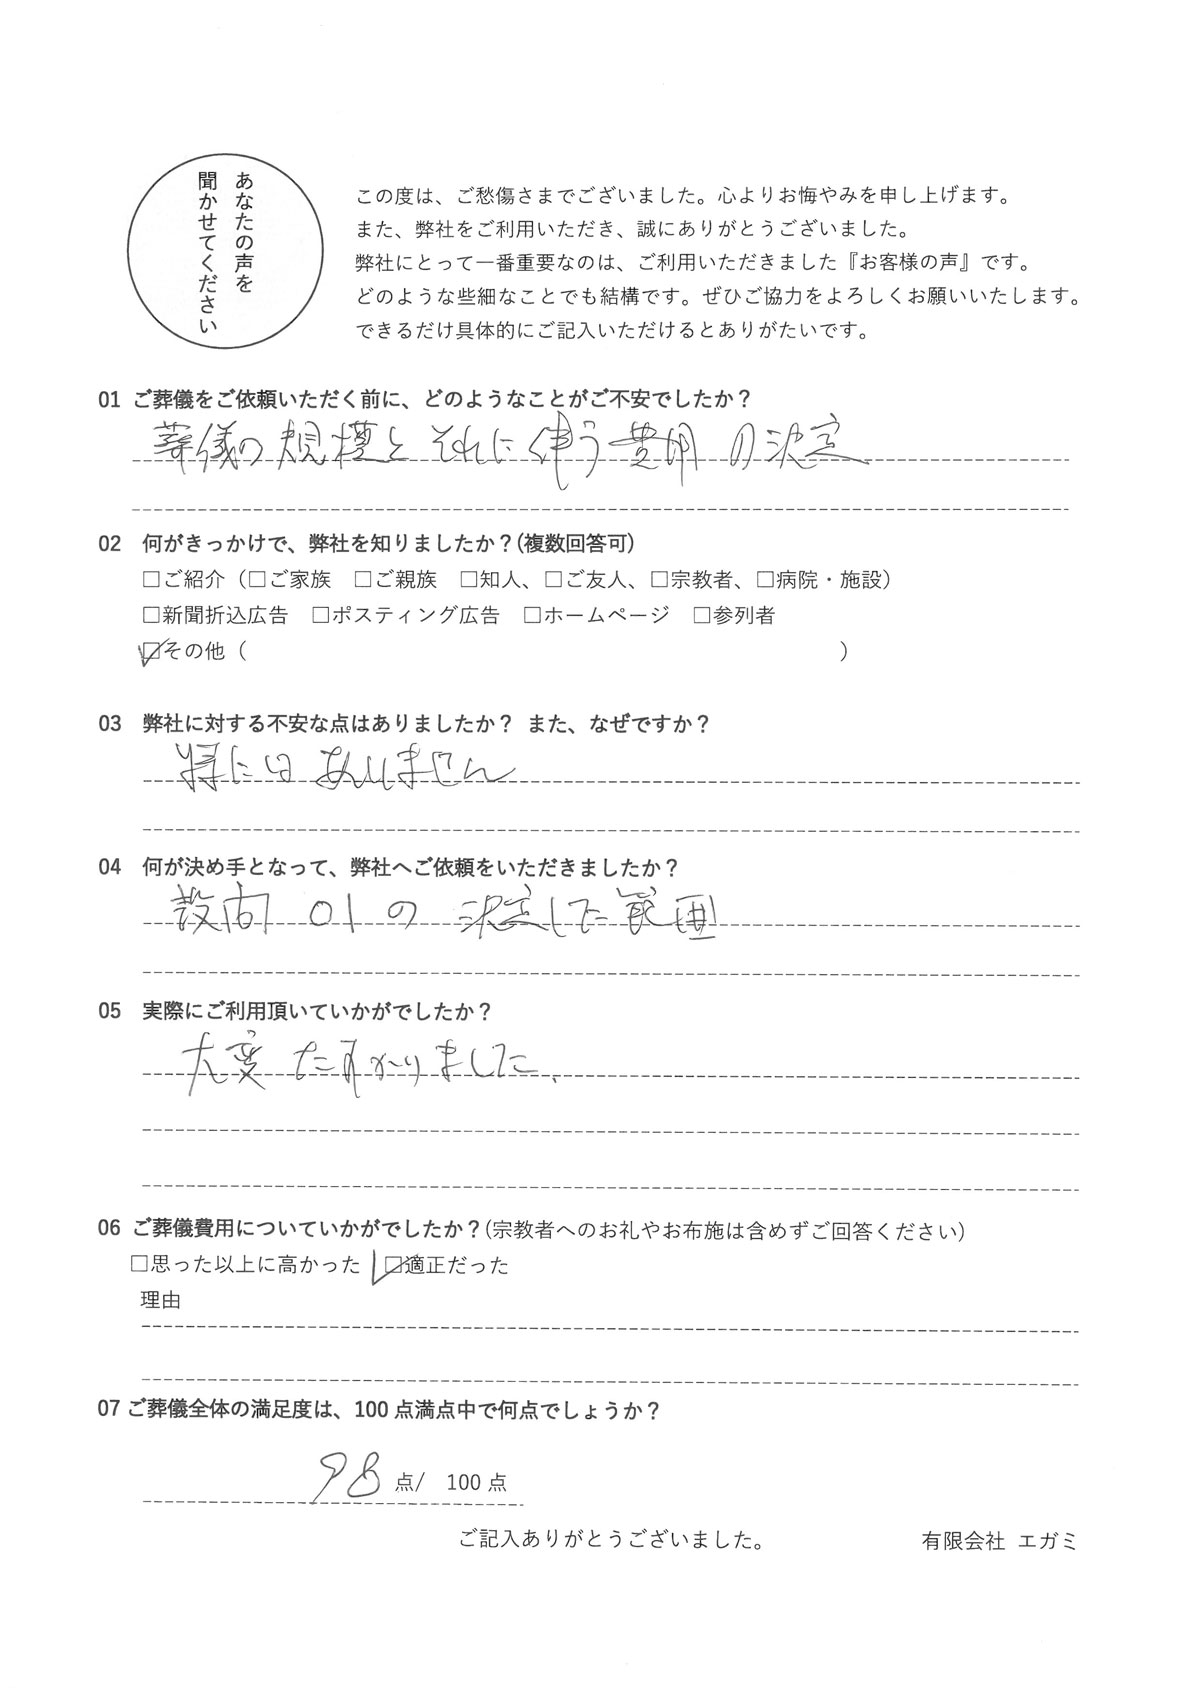 あなたの声を
聞かせてください
この度は、ご愁傷さまでございました。心よりお悔やみを申し上げます。
また、弊社をご利用いただき、誠にありがとうございました。
弊社にとって一番重要なのは、ご利用いただきました『お客様の声』です。
どのような些細なことでも結構です。ぜひご協力をよろしくお願いいたします。
できるだけ具体的にご記入いただけるとありがたいです。
01 ご葬儀をご依頼いただく前に、どのようなことがご不安でしたか？
葬儀の規模とそれに伴う費用の決定
02 何がきっかけで、弊社を知りましたか？(複数回答可)
□ご紹介（□ご家族 □ご親族 □知人、□ご友人、□宗教者、□病院・施設）
□新聞折込広告 □ポスティング広告 □ホームページ □参列者
☑その他（ ）
03 弊社に対する不安な点はありましたか？ また、なぜですか？
特にはありません
04 何が決め手となって、弊社へご依頼をいただきましたか？
設問 01の 決定した範囲
05 実際にご利用頂いていかがでしたか？
大変 たすかりました、
06 ご葬儀費用についていかがでしたか？(宗教者へのお礼やお布施は含めずご回答ください）
□思った以上に高かった ☑適正だった
理由
07 ご葬儀全体の満足度は、100 点満点中で何点でしょうか？
98 点/ 100 点
ご記入ありがとうございました。 有限会社 エガミ